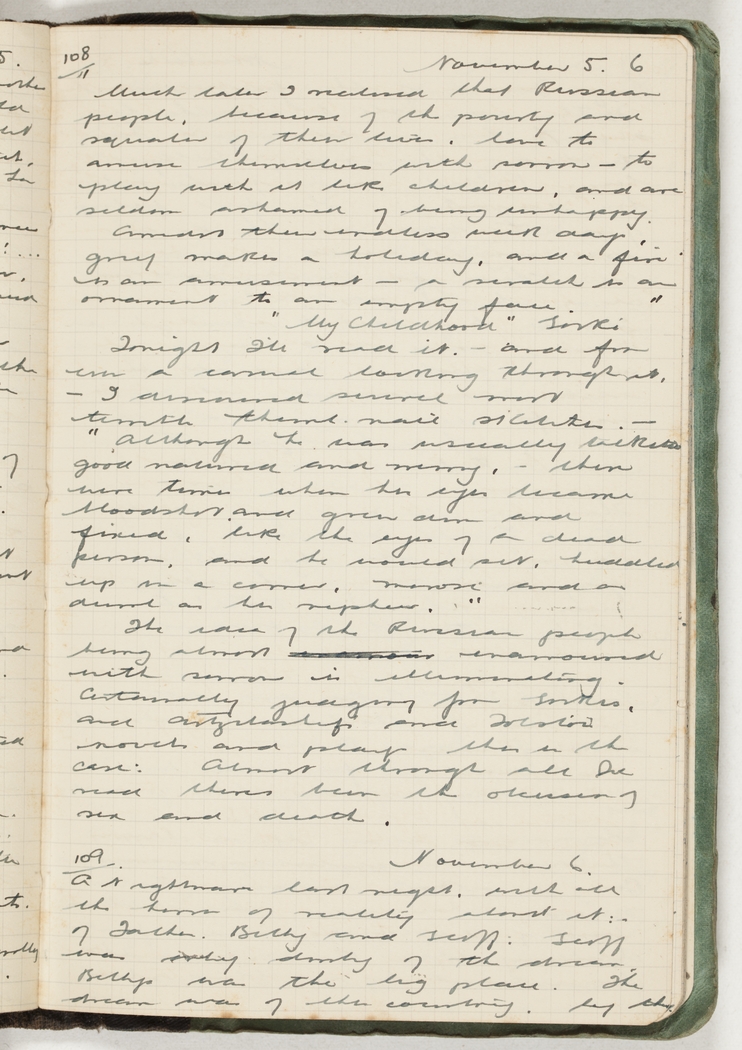 108
11
November 5. 6
Much later I realised that Russian
people, because of the poverty and
squalor of their lives, love to
amuse themselves with sorrow — to
play with it like children, and are
seldom ashamed of being unhappy.
Amidst their endless week days,
grief makes a holiday, and a fire
is an amusement — a scratch is an
ornament to an empty face. "
" My Childhood " Gorki
Tonight I'll read it. — and from
even a casual looking through it,
— I discovered several most
terrible thumb nail sketches. —
" Although he was usually
good natured and merry, - there
were times when his eyes became
bloodshot and grew dim and
fixed, like the eyes of a dead
person, and he would sit, huddled
up in a corner, morose and as
dumb as his nephew. "
The idea of the Russian people
being almost enamoured
with sorrow is illuminating.
Certainly judging from Gorki's,
and and Tolstoi
novels and plays this is the
case: Almost through all I've
read there's been the obsession of
sex and death.
109.
November 6.
A Nightmare last night, with all
the horror of reality about it:-
of Father. Betty and Geoff: Geoff
was only dimly of the dream,
Betty's was the big place. The
dream was of the country. by the